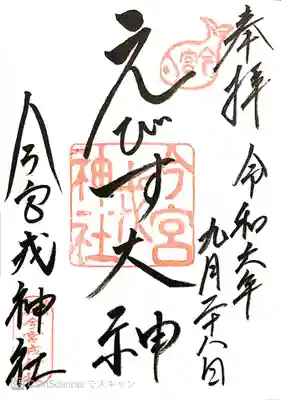 奉拝
令和六年
九月二十八日
えびす大神
今宮戎神社
今宮戎神社
CamScanner でスキャン